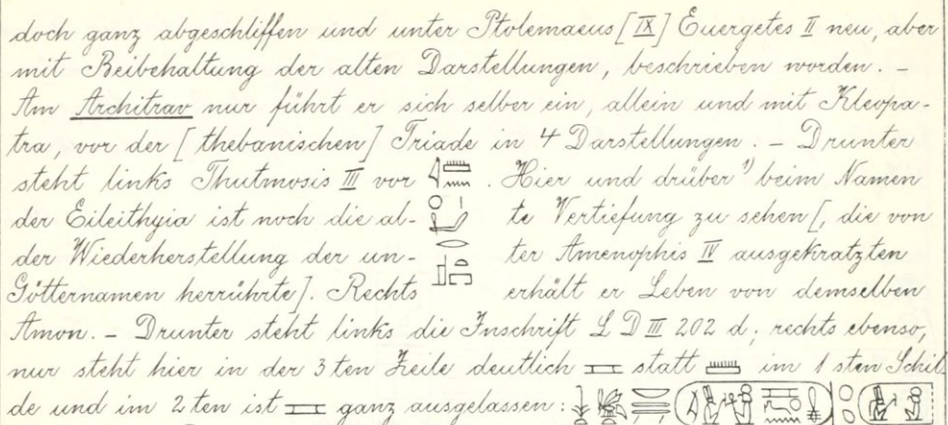 doch ganz abgeschliffen und unter Ptolemaeus [IX] Euergetes II neu, aber
mit Beibehaltung der alten Darstellungen, beschrieben worden. –
Am Architrav nur führt er sich selber ein, allein und mit Kleopa-
tra, vor der [thebanischen] Triade in 4 Darstellungen. – Drunter
steht links Thutmosis III vor . Hier und drüber 1) beim Namen
der Eileithyia ist noch die al- te Vertiefung zu sehen [, die von
der Wiederherstellung der un- ter Amenophis IV ausgekratzten
Götternamen herrührte]. Rechts erhält er Leben von demselben
Amon. – Drunter steht links die Inschrift L D III 202 d; rechts ebenso,
nur steht hier in der 3 ten Zeile deutlich statt im 1 sten Schil
de und im 2 ten ist ganz ausgelassen: